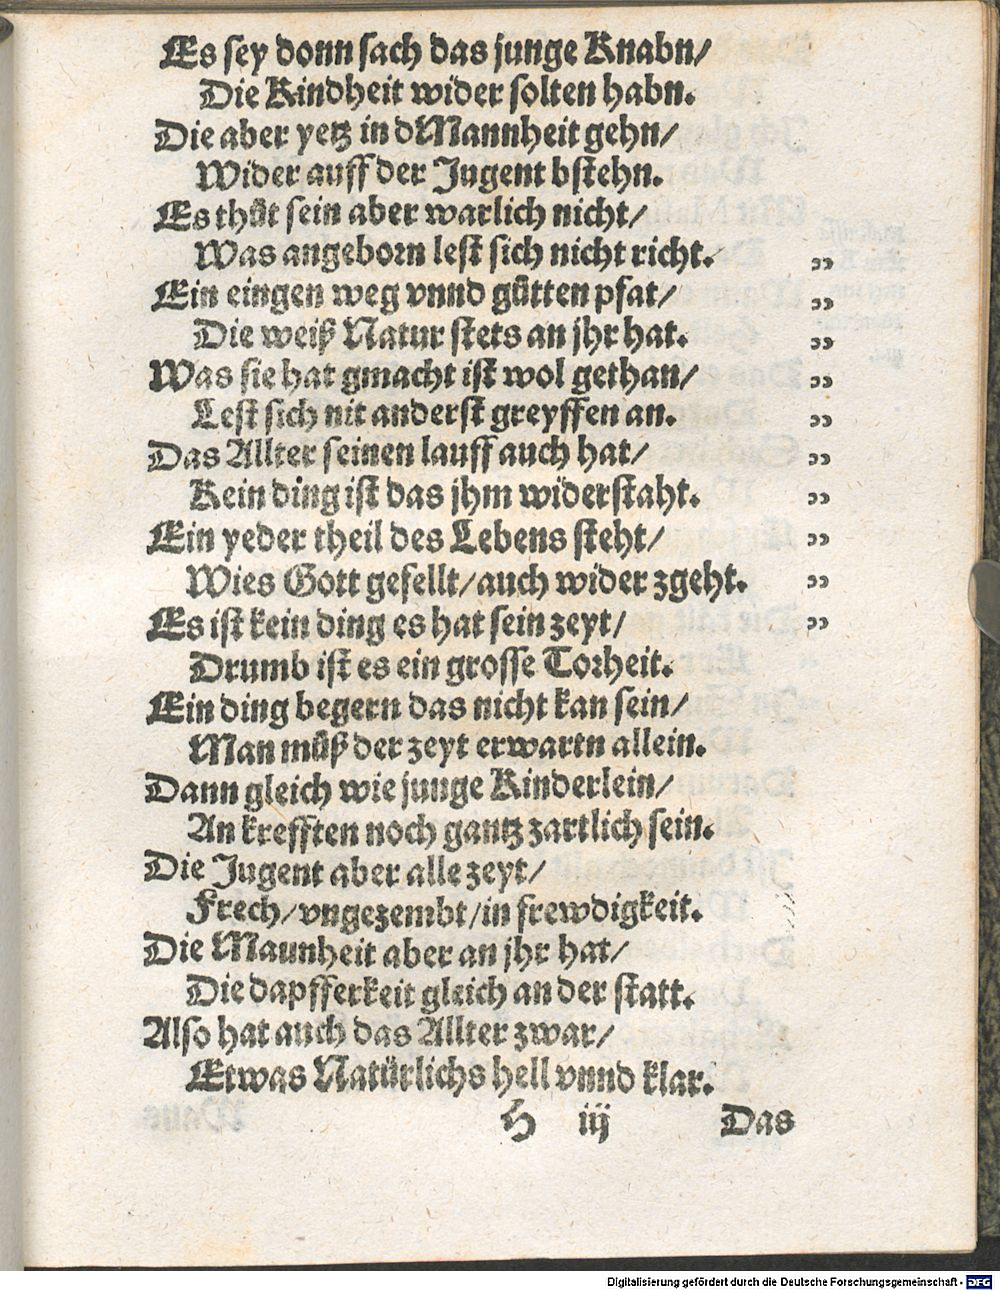 Es sey donn sach das junge Knabn/
Die Kindheit wider solten habn.
Die aber yetz in dMannheit gehn/
Wider auff der Jugent bstehn.
Es thůt sein aber warlich nicht/
Was angeborn lest sich nicht richt. „
Ein eingen weg vnnd gůtten pfat/ „
Die weiß Natur stets an jhr hat. „
Was sie hat gmacht ist wol gethan/ „
Lest sich nit anderst greyffen an. „
Das Allter seinen lauff auch hat/ „
Kein ding ist das jhm widerstaht. „
Ein yeder theil des Lebens steht/ „
Wies Gott gefellt/auch wider zgeht. „
Es ist kein ding es hat sein zeyt/ „
Drumb ist es ein grosse Torheit.
Ein ding begern das nicht kan sein/
Man můß der zeyt erwartn allein.
Dann gleich wie junge Kinderlein/
An krefften noch gantz zartlich sein.
Die Jugent aber alle zeyt/
Frech/vngezembt/in frewdigkeit.
Die Maunheit aber an jhr hat/
Die dapfferkeit gleich an der statt.
Also hat auch das Allter zwar/
Etwas Natürlichs hell vnnd klar.
H iij Das
Digitalisierung gefördert durch die Deutsche Forschungsgemeinschaft - DFG